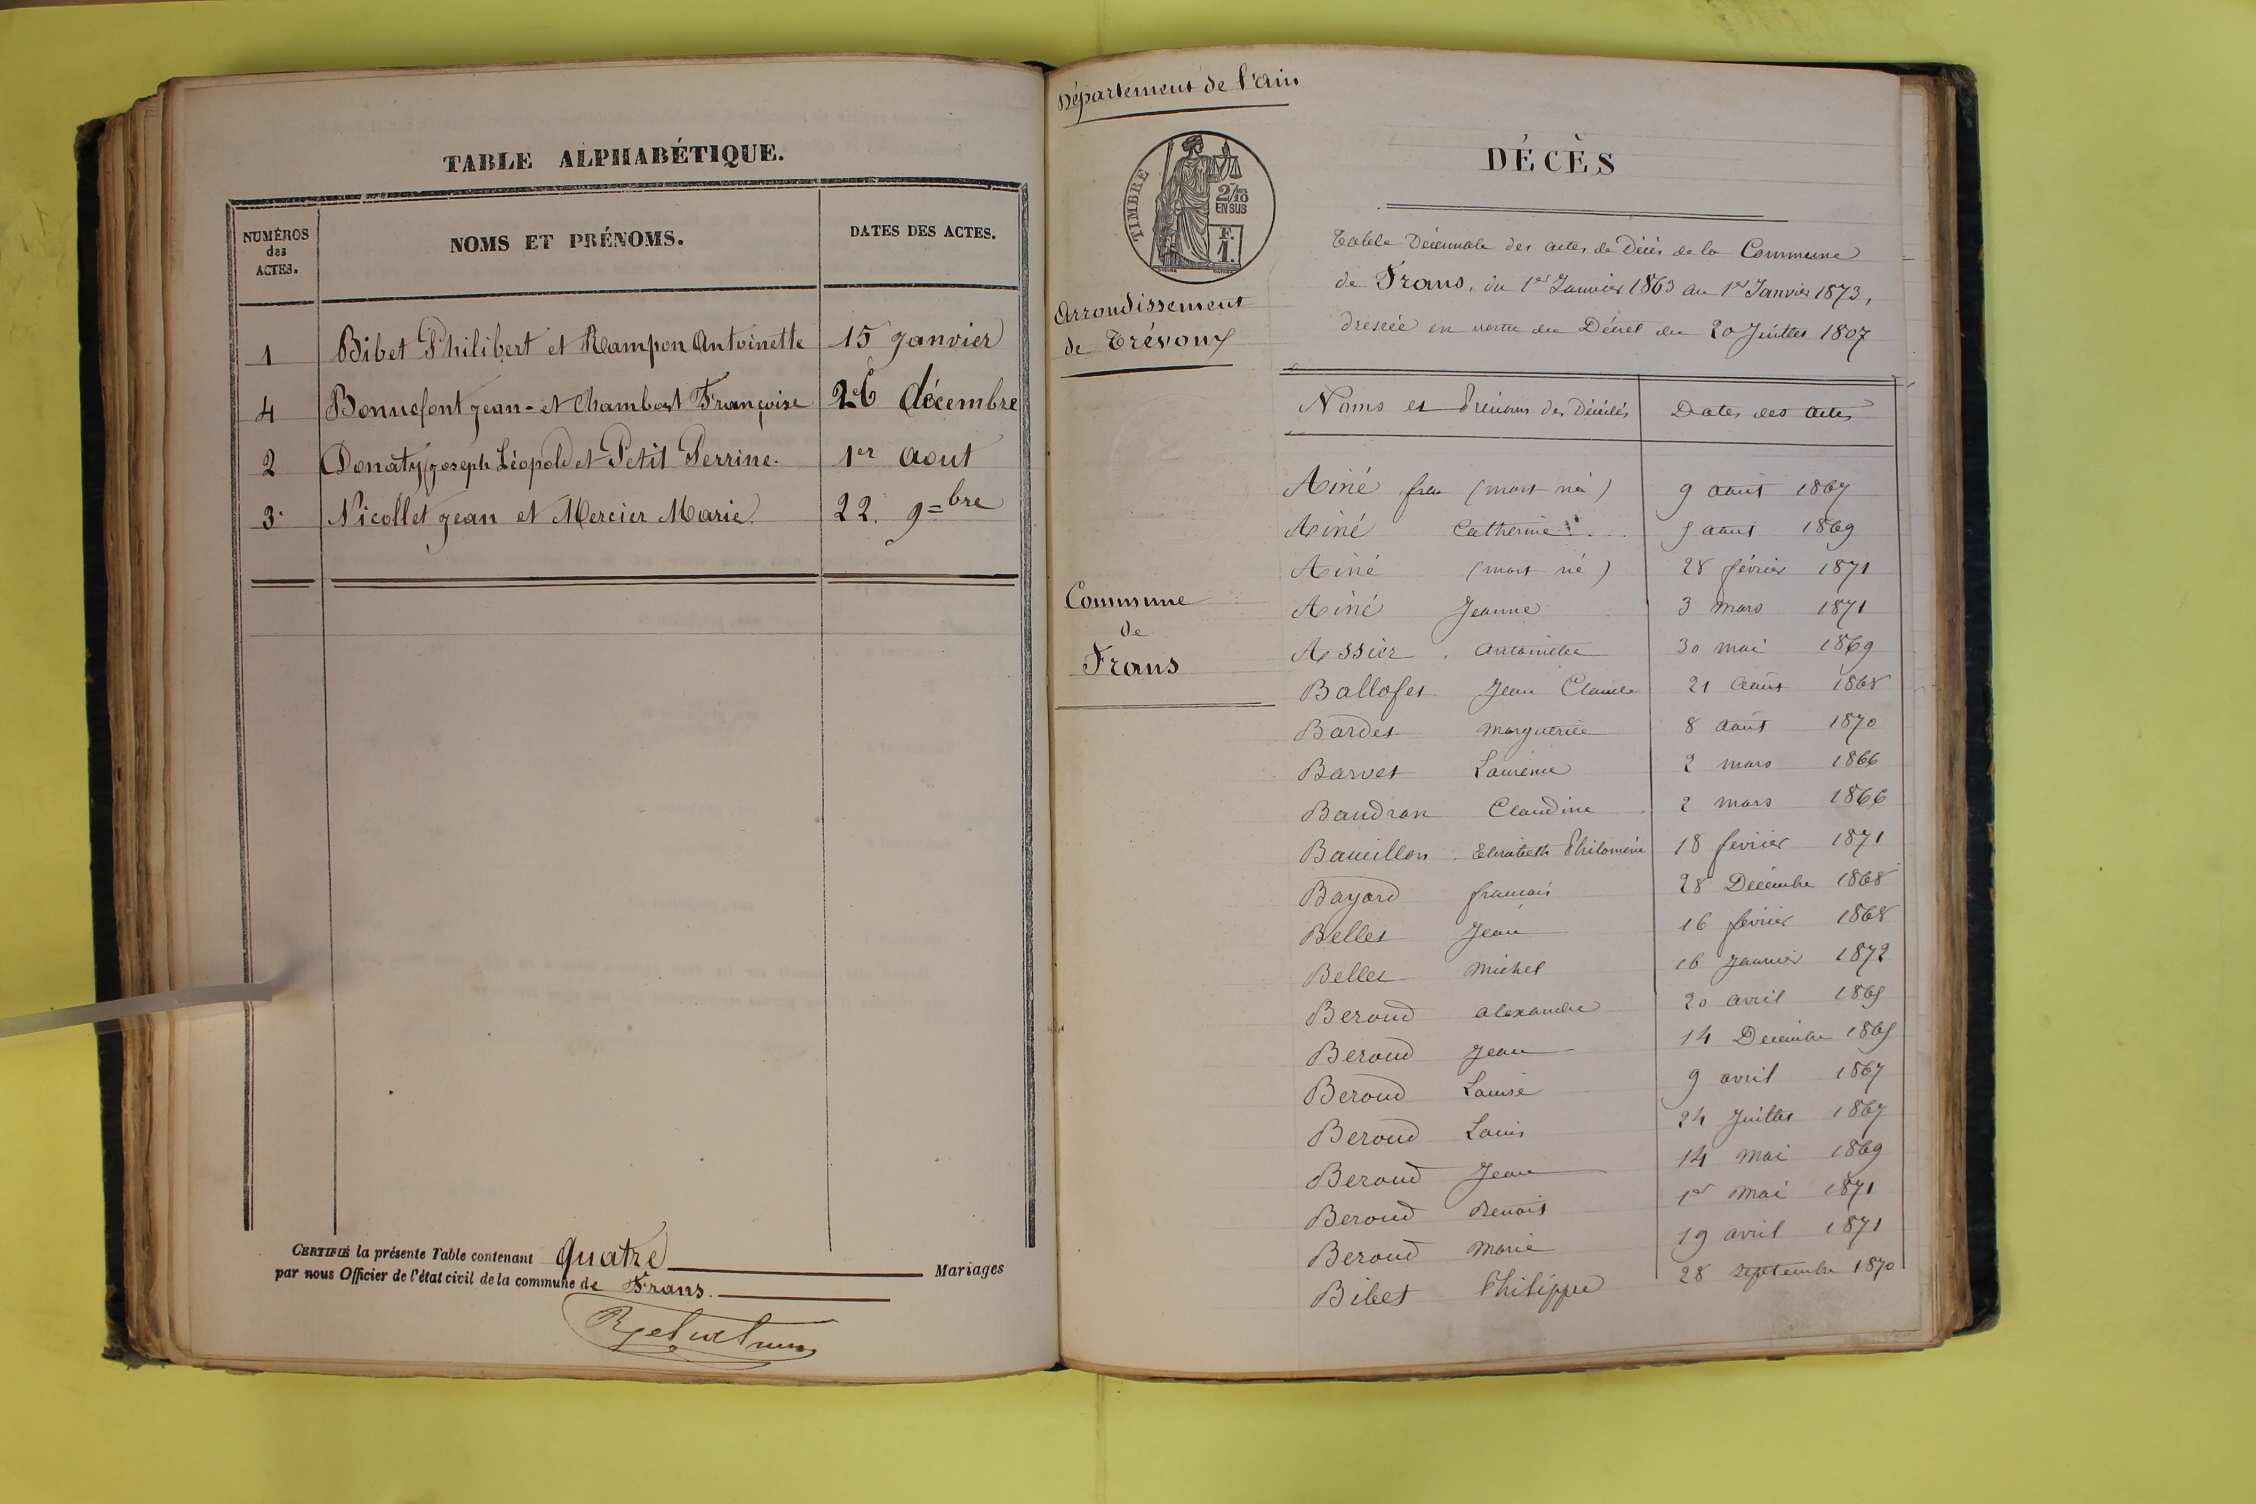 TABLE ALPHABÉTIQUE.
NUMÉROS des ACTES. NOMS ET PRÉNOMS. DATES DES ACTES.
1 Bibet Philibert et Rampon Antoinette 15 janvier
4 Bonnefont jean - et Chambart Françoise 26 décembre
2 Donaty joseph Léopold et Petit Perrine. 1er aout
3. Nicollet jean et Mercier Marie. 22. 9=bre
CERTIFIÉ la présente Table contenant quatre Mariages
par nous Officier de l'état civil de la commune de Frans.
Département de l'ain
TIMBRE
2/10 EN SUS
F. 1.
Arrondissement
de Trévoux
Commune
de
Frans
DÉCÈS
Table Décennale des actes de Décès de la Commune
de Frans, du 1er Janvier 1863 au 1er Janvier 1873,
dressée en vertu du Décret du 20 Juillet 1807
Noms et Prénoms des Décédés Dates des actes
Ainé (mort né) 9 août 1867
Ainé Catherine 5 août 1869
Ainé (mort né) 28 février 1871
Ainé Jeanne 3 mars 1871
Assier Antoinette 30 mai 1869
Ballofet Jean Claude 21 août 1868
Bardet Marguerite 8 août 1870
Barvet Laurence 2 mars 1866
Baudran Claudine 2 mars 1866
Elisabeth Philomène 18 février 1871
Bayard francois 28 Décembre 1868
Bellet Jean 16 février 1868
Bellet Michel 16 Janvier 1872
Beroud alexandre 20 avril 1865
Beroud Jean 14 Decembre 1865
Beroud Louise 9 avril 1867
Beroud Louis 24 Juillet 1867
Beroud Jean 14 mai 1869
Beroud Benoit 1er Mai 1871
Beroud Marie 19 avril 1871
Bibet Philippe 28 septembre 1870